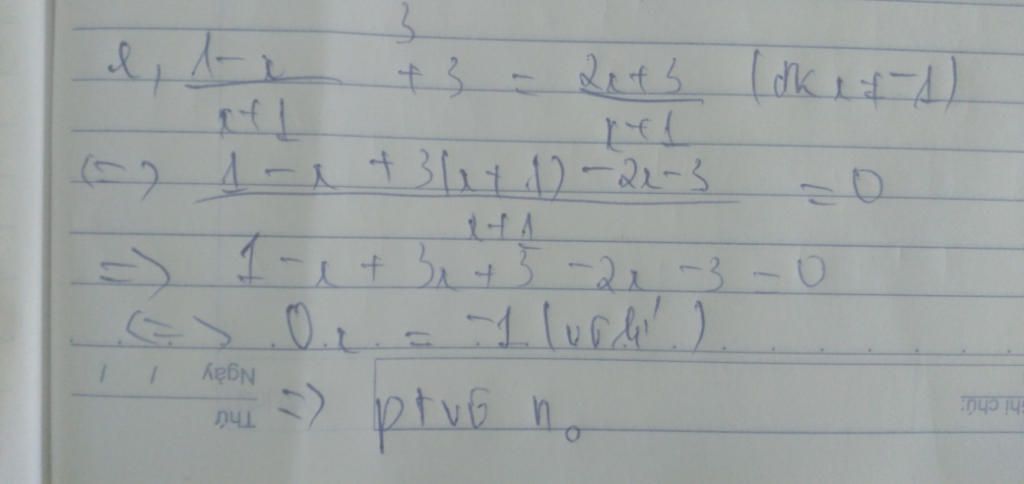 3
e, (1-x)/(x+1) + 3 = (2x+3)/(x+1) (đk x ≠ -1)
<=> (1 - x + 3(x+1) - 2x - 3)/(x+1) = 0
=> 1 - x + 3x + 3 - 2x - 3 = 0
<=> 0x = -1 (vô lí)
=> pt vô n0
Ngày / /
Thứ
Ghi chú: